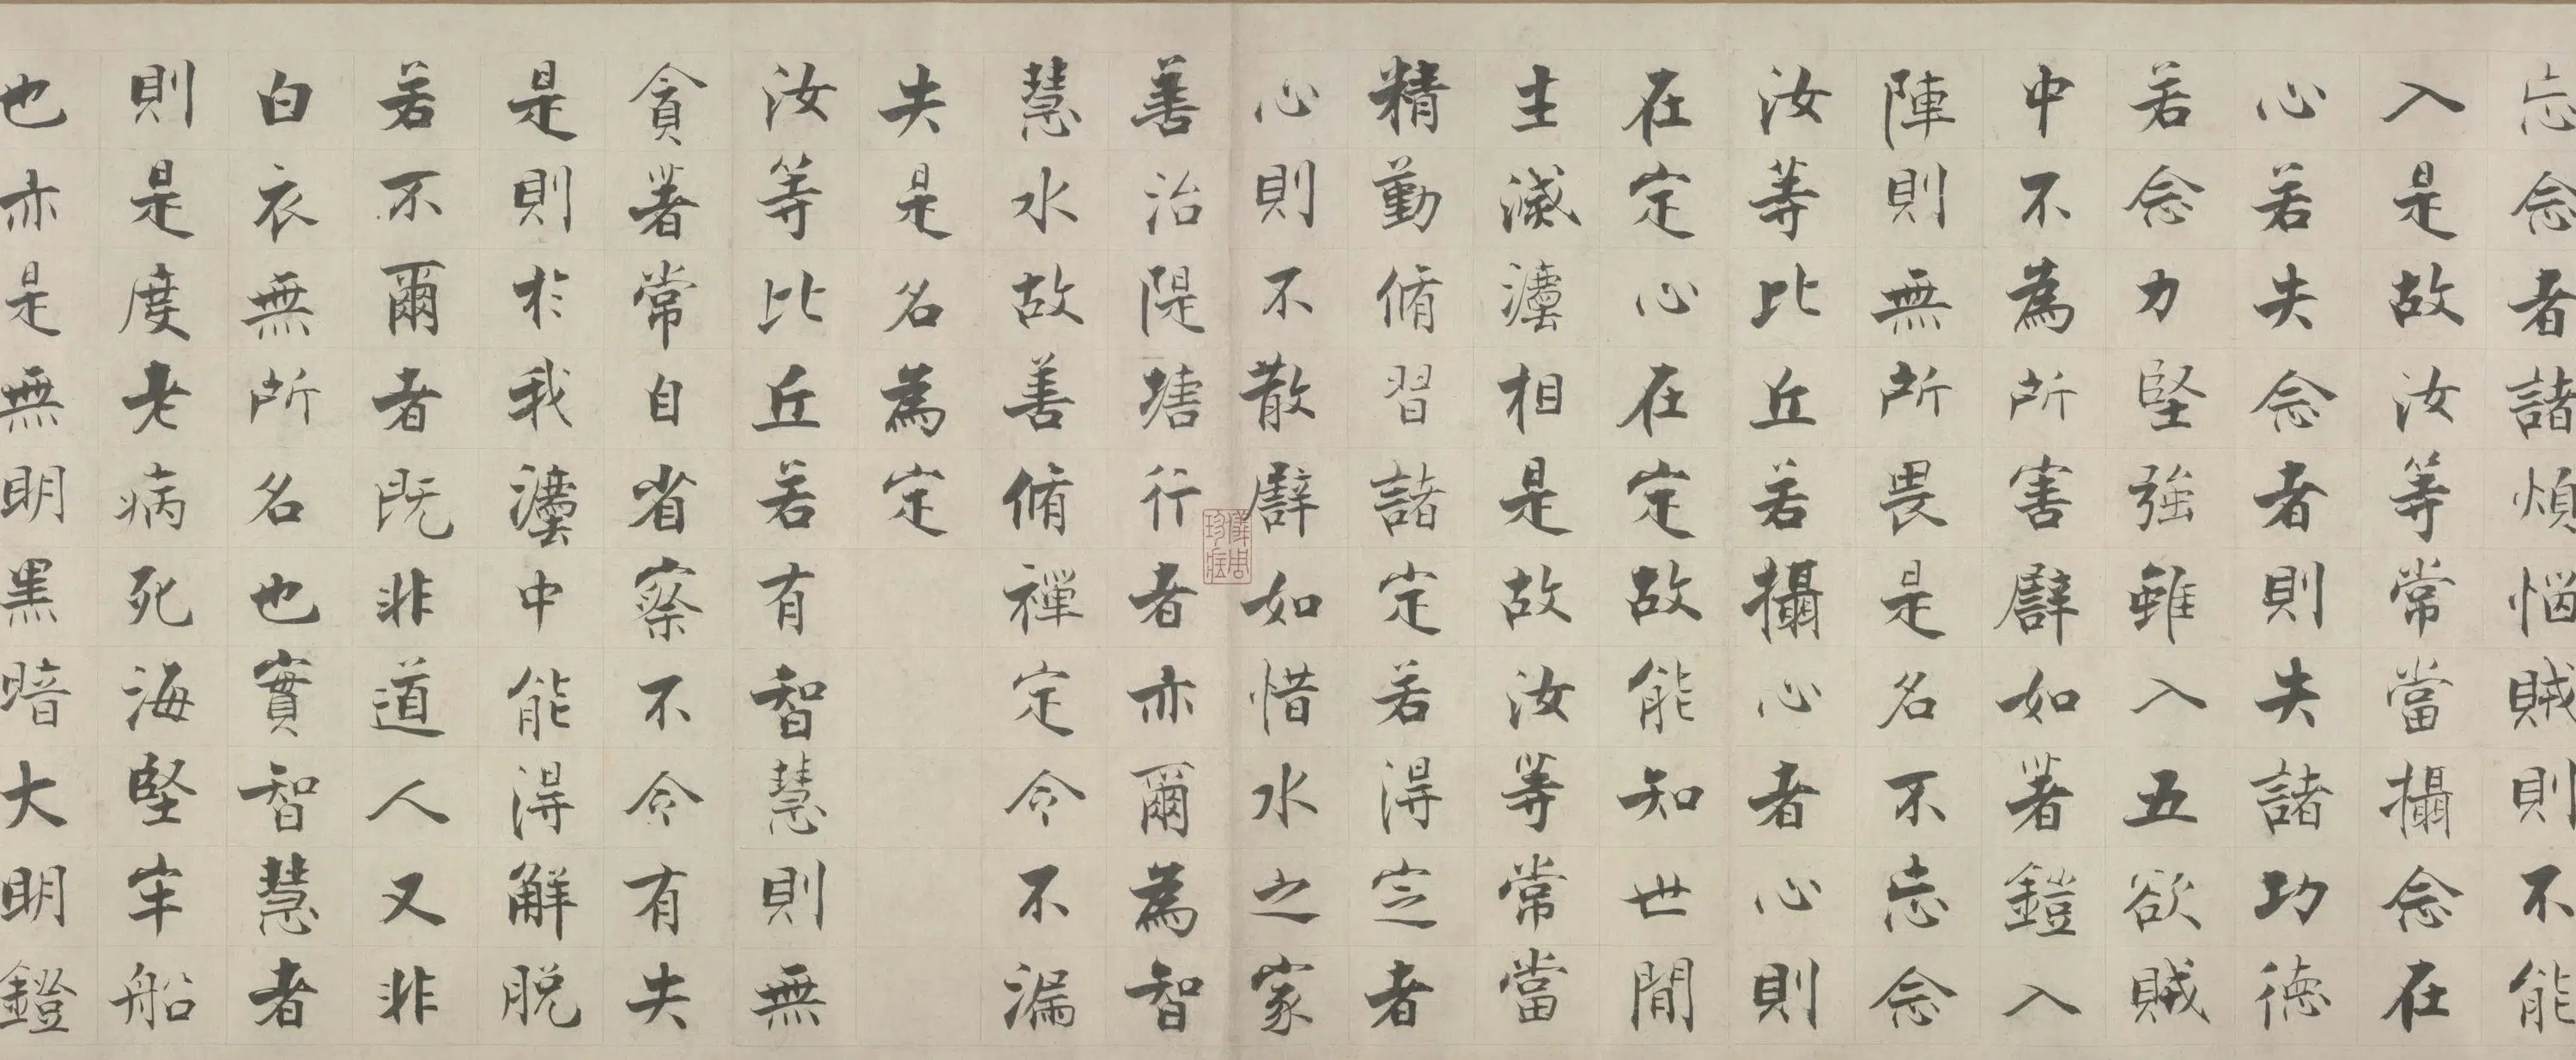 忘念者諸煩惱賊則不能
入是故汝等常當攝念在
心若失念者則失諸功德
若念力堅強雖入五欲賊
中不為所害譬如著鎧入
陣則無所畏是名不忘念
汝等比丘若攝心者心則
在定心在定故能知世間
生滅灋相是故汝等常當
精勤脩習諸定若得定者
心則不散譬如惜水之家
善治隄塘行者亦爾為智
慧水故善脩禪定令不漏
失是名為定
汝等比丘若有智慧則無
貪著常自省察不令有失
是則於我灋中能得解脫
若不爾者既非道人又非
白衣無所名也實智慧者
則是度老病死海堅牢船
也亦是無明黑暗大明鐙
儀周珍藏